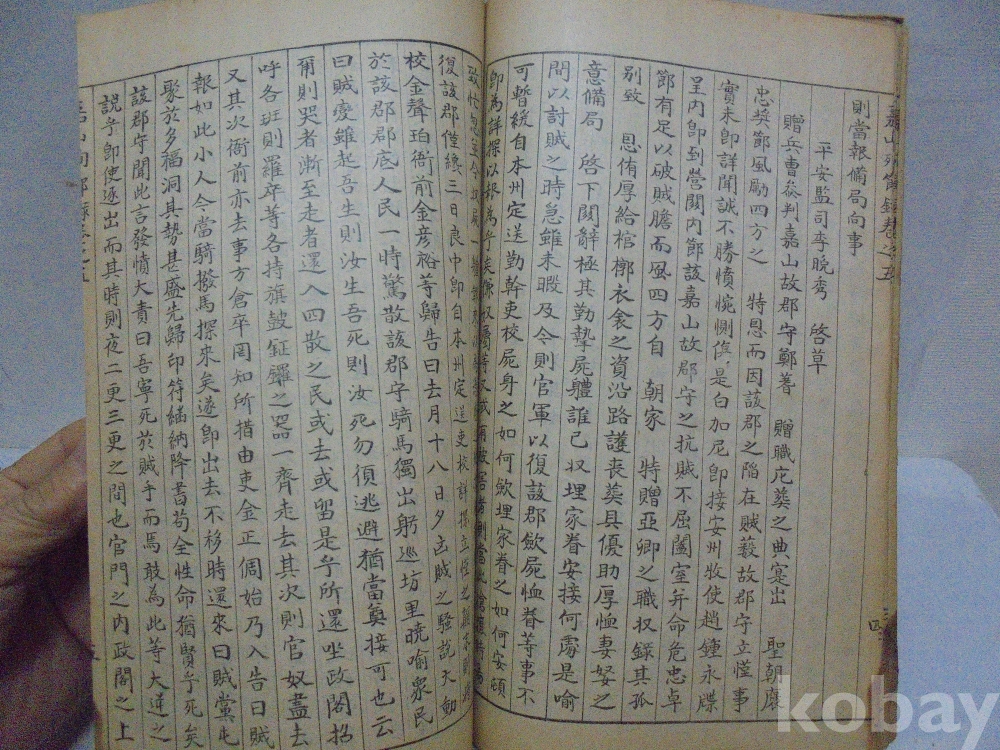 則當報備局向事
平安監司李晩秀 啓草
贈兵曹參判嘉山故郡守鄭蓍 贈職庀葬之典寔出 聖朝褒
忠奬節風勵四方之 特恩而因該郡之陷在賊藪故郡守立慬事
實未卽詳聞誠不勝憤惋惻傷是白加尼卽接安州牧使趙鍾永牒
呈內卽到營關內節該嘉山故郡守之抗賊不屈闔室并命危忠卓
節有足以破賊膽而風四方自 朝家 特贈亞卿之職收錄其孤
別致 恩侑厚給棺槨衣衾之資沿路護喪葬具優助厚恤妻孥之
意備局 啓下關辭極其勤摯屍軆誰已收埋家眷安接何處是喩
問以討賊之時急雖未暇及今則官軍以復該郡歛屍恤眷等事不
可暫緩自本州定送勤幹吏校屍身之如何歛埋家眷之如何安頓
卽爲詳探以報爲乎矣
復該郡僅纔三日良中卽自本州定送吏校詳探立慬之
校金聲珀衙前金彦裕等歸告曰去月十八日夕西賊之騷說大動
於該郡郡底人民一時驚散該郡守騎馬獨出躬巡坊里曉喩衆民
曰賊變雖起吾生則汝生吾死則汝死勿須逃避猶當奠接可也云
爾則哭者漸至走者還入四散之民或去或留是乎所還坐政閣招
呼各班則羅卒等各持旗鼓鉦鑼之器一齊走去其次則官奴盡去
又其次衙前亦去事方倉卒罔知所措由吏金正倜始乃入告曰賊
報如此小人今當騎撥馬探來矣遂卽出去不移時還來曰賊黨屯
聚於多福洞其勢甚盛先歸印符繼納降書苟全性命猶賢乎死矣
該郡守聞此言發憤大責曰吾寧死於賊手而焉敢爲此等大逆之
說乎卽使逐出而其時則夜二更三更之間也官門之內政閣之上
kobay